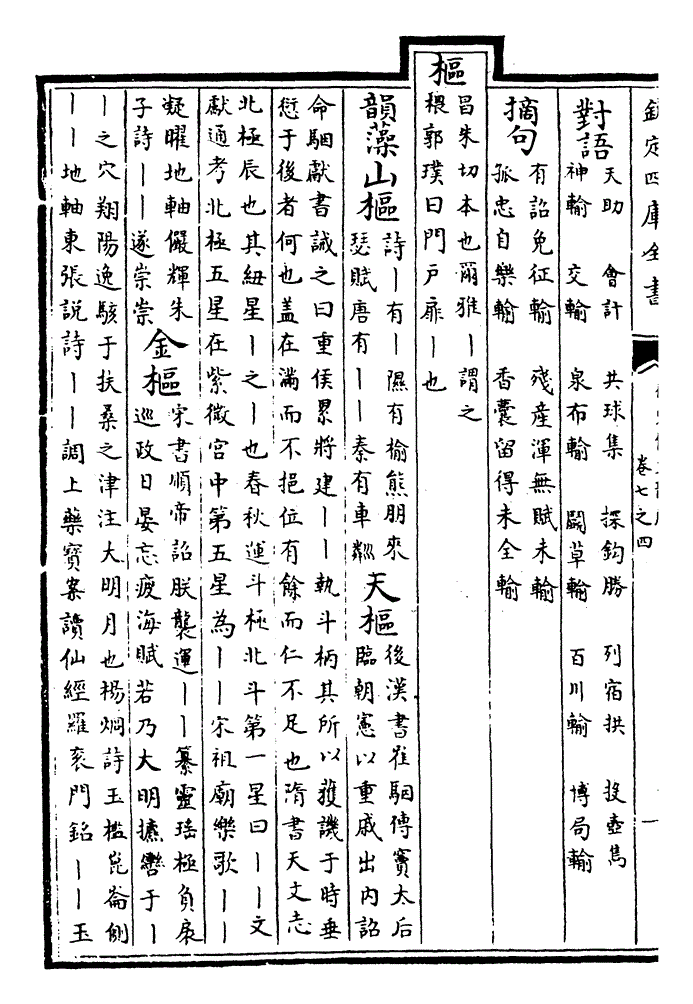 欽定四庫全書
卷七之四
一
對語
天助 會計 共球集 探鈎勝 列宿拱 投壺雋
神輸 交輸 泉布輸 鬭草輸 百川輸 博局輸
摘句
有詔免征輸 殘産渾無賦未輸
孤忠自樂輸 香囊留得未全輸
樞
昌朱切本也爾雅丨謂之
椳郭璞曰門戶扉丨也
韻藻山樞
詩丨有丨隰有榆熊朋來
瑟賦唐有丨丨秦有車鄰
天樞
後漢書崔駰傳竇太后
臨朝憲以重戚出内詔
命駰獻書誡之曰重侯累將建丨丨執斗柄其所以獲譏于時垂
愆于後者何也盖在滿而不挹位有餘而仁不足也隋書天文志
北極辰也其紐星丨之丨也春秋運斗極北斗第一星曰丨丨文
獻通考北極五星在紫微宮中第五星為丨丨宋祖廟樂歌丨丨
凝曜地軸儼輝朱
子詩丨丨遂崇崇
金樞
宋書順帝詔朕襲運丨丨纂靈瑤極負扆
巡政日晏忘疲海賦若乃大明攠轡于丨
丨之穴翔陽逸駭于扶桑之津注大明月也楊烱詩玉檻崑崙側
丨丨地軸東張説詩丨丨調上藥寶案讀仙經羅衮門銘丨丨玉